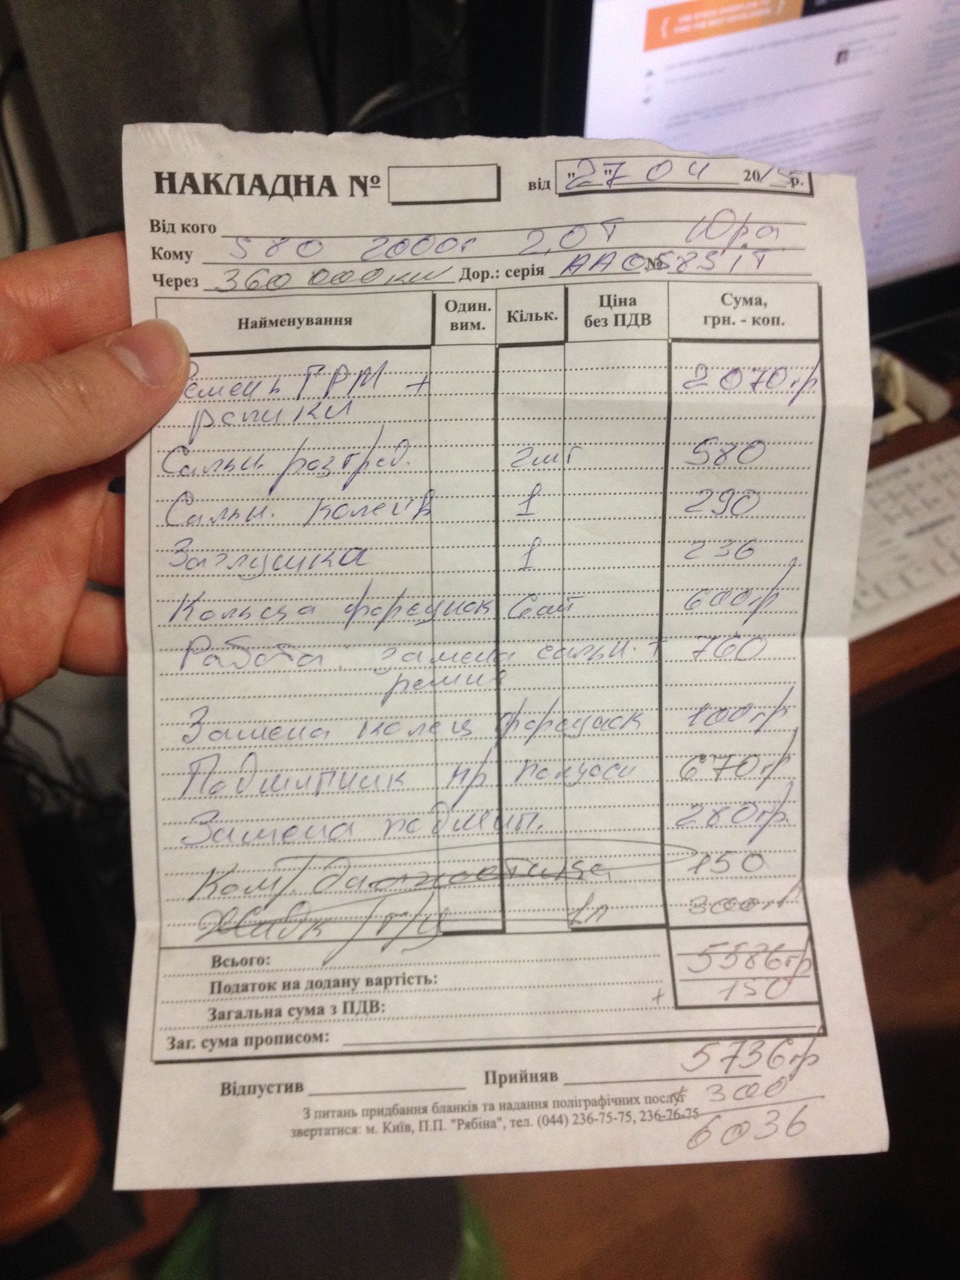 НАКЛАДНА № від "27" 04 2015р.
Від кого
Кому S80 2000г 2,0T Юра
Через 360 000км Дор.: серія AA0583IT №
Найменування Один. вим. Кільк. Ціна без ПДВ Сума, грн. - коп.
Ремень ГРМ + 2070гр
ролики
Сальн. разпред. 2шт 580
Сальн. колен 1 290
Заглушка 1 236
Кольца форсунок 600гр
Работа: замена сальн. + 760
ремня
Замена колец форсунок 100гр
Подшипник пр полуоси 670гр
Замена подшип. 280гр
Комп диагностика 150
1л 300гр
Всього: 5586гр
Податок на додану вартість: 150
Загальна сума з ПДВ: +
Заг. сума прописом:
5736гр
Відпустив Прийняв
+ 300
З питань придбання бланків та надання поліграфічних послуг
звертатися: м. Київ, П.П. "Рябіна", тел. (044) 236-75-75, 236-76-75
6036